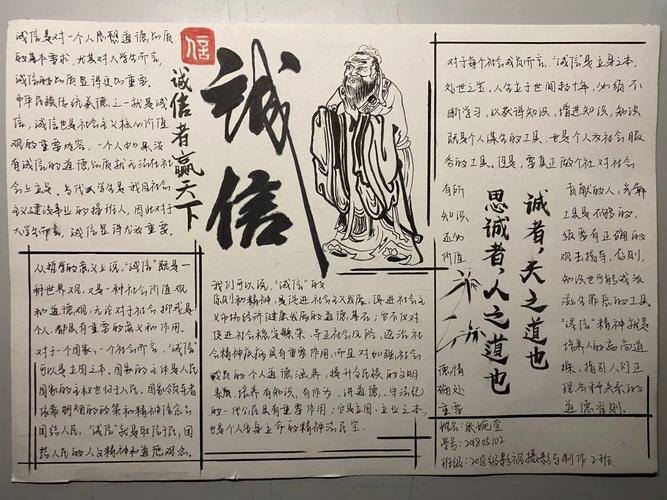 诚信是对一个人思想道德品质
的基本要求，尤其对大学生而言，
诚信的品质显得更加重要。
中华民族传统美德之一就是诚
信，诚信也是社会主义核心价值
观的重要内容。一个人如果没
有诚信的道德品质就无法在社
会上立足。当代大学生是我国社会
主义建设事业的接班人，因此对于
大学生而言，诚信显得尤为重要。
信
诚信者赢天下
誠信
对于每个社会成员而言，“诚信”是立身之本，
处世之宝，人生立于世间数十年，必须不
断学习，以获得知识、增进知识，知识
既是个人谋生的工具，也是个人为社会服
务的工具。但是，要真正的个社对社会
有所
知识
还的
价值
贡献的人，光解
工具是不够的，
级要有正确的
观去指导，否则，
知识也可能成为
“诚信”精神就是
培养人的高尚道
操，指引人们正
理各种关系的
道德准则。
德情
确处
重要
诚者，天之道也
思诚者，人之道也
从哲学的意义上说，“诚信”既是一
种世界观，又是一种社会价值观
和道德观，无论对于社会抑或是
个人，都具有重要的意义和作用。
对于一个国家、一个社会而言，“诚信”
可以是立国之本。国家的主体是人民
国家的主权也归于人民。国家领导者
团结人民，“诚信”就是取信于民，团
结人民的人文精神和道德观念。
我们可以说，“诚信”的
原则和精神，是促进社会主义发展、促进社会主
义市场经济健康发展的道德基石；它不仅对
促进社会稳定繁荣、导正社会风险、医治社
会精神疾病具有重要作用，而且对加强社会
成员的个人道德涵养，提升全民族的文明
素质，培养有知识、有作为、讲道德、守法纪
的一代公民具有重要作用；它是立国、立业之本，
也是个人安身立命的精神法宝。
姓名：张婉莹
学号：201805102
班级：2018级影视摄影与制作2班